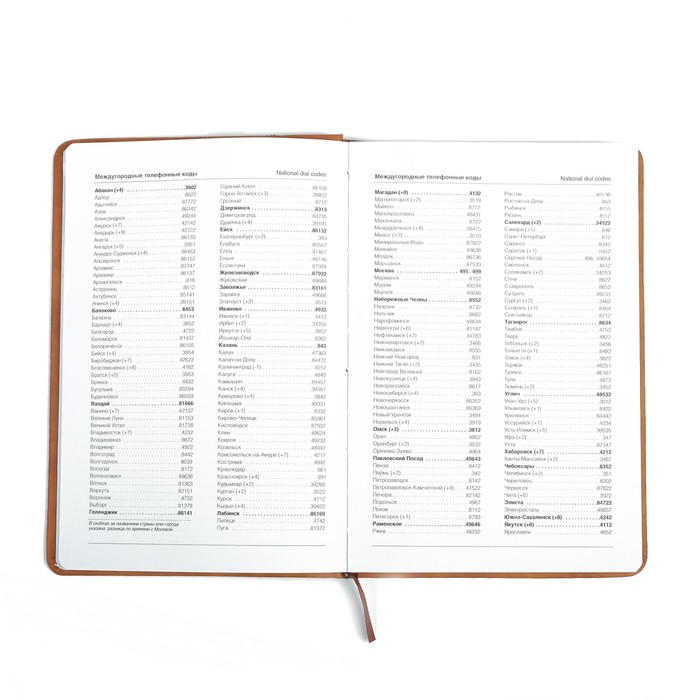 Междугородные телефонные коды
National dial codes
Абакан (+4) 3902
Адлер 8622
Адыгейск 87772
Азов 86342
Александров 49244
Амурск (+7) 42142
Анадырь (+9) 42722
Анапа 86133
Ангарск (+5) 3951
Анжеро-Судженск (+4) 38453
Апшеронск 86152
Арзамас 83147
Армавир 86137
Архангельск 818
Астрахань 8512
Ахтубинск 85141
Ачинск (+4) 39151
Балаково 8453
Балахна 83144
Барнаул (+4) 3852
Белгород 4722
Беломорск 81437
Белореченск 86155
Бийск (+4) 3854
Биробиджан (+7) 42622
Благовещенск (+6) 4162
Братск (+5) 3953
Брянск 4832
Бугульма 85594
Буденновск 86559
Валдай 81666
Ванино (+7) 42137
Великие Луки 81153
Великий Устюг 81738
Владивосток (+7) 4232
Владикавказ 8672
Владимир 4922
Волгоград 8442
Волгодонск 8639
Вологда 8172
Волоколамск 49636
Волхов 81363
Воркута 82151
Воронеж 4732
Выборг 81378
Геленджик 86141
В скобках за названием страны или города
указана разница по времени с Москвой
Горячий Ключ 86159
Горно-Алтайск (+3) 38822
Грозный 8712
Дзержинск 8313
Димитровград 84235
Дудинка (+4) 39191
Ейск 86132
Екатеринбург (+2) 343
Елабуга 85557
Елец 47467
Ельня 48146
Ессентуки 87934
Железноводск 87932
Жуковский 49648
Заволжье 83161
Зарайск 49666
Златоуст (+2) 3513
Иваново 4932
Ижевск (+1) 3412
Ирбит (+2) 34355
Иркутск (+5) 3952
Йошкар-Ола 8362
Казань 843
Калач 47363
Калач-на-Дону 84472
Калининград (-1) 4012
Калуга 4842
Камышин 84457
Канск (+4) 39161
Кемерово (+4) 3842
Кинешма 49331
Киров (+1) 8332
Кирово-Чепецк 83361
Кисловодск 87937
Клин 49624
Ковров 49232
Козельск 48442
Комсомольск-на-Амуре (+7) 4217
Кострома 4942
Краснодар 861
Красноярск (+4) 391
Кудымкар (+2) 34260
Курган (+2) 3522
Курск 4712
Кызыл (+4) 39422
Лабинск 86169
Липецк 4742
Луга 81372
Междугородные телефонные коды
National dial codes
Магадан (+8) 4132
Магнитогорск (+2) 3519
Майкоп 8772
Малоярославец 48431
Махачкала 8722
Междуреченск (+4) 38475
Миасс (+2) 3513
Минеральные Воды 87922
Можайск 49638
Моздок 86736
Моршанск 47533
Москва 495, 499
Мурманск 8152
Муром 49234
Мценск 48646
Набережные Челны 8552
Назрань 8732
Нальчик 8662
Нарофоминск 49634
Нерюнгри (+6) 41147
Нефтекамск (+2) 34783
Нижневартовск (+2) 3466
Нижнекамск 8555
Нижний Новгород 831
Нижний Тагил (+2) 3435
Новгород Великий 8162
Новокузнецк (+4) 3843
Новороссийск 8617
Новосибирск (+4) 383
Новочеркасск 86352
Новошахтинск 86369
Новый Уренгой 3494
Норильск (+4) 3919
Омск (+3) 3812
Орел 4862
Оренбург (+2) 3532
Орехово-Зуево 4964
Павловский Посад 49643
Пенза 8412
Пермь (+2) 342
Петрозаводск 8142
Петропавловск-Камчатский (+9) 41522
Печора 82142
Подольск 4967
Псков 8112
Пятигорск (+1) 8793
Раменское 49646
Ржев 48232
Ростов 48536
Ростов-на-Дону 863
Рыбинск 4855
Рязань 4912
Салехард (+2) 34922
Самара (+1) 846
Санкт-Петербург 812
Саранск 8342
Саратов (+1) 8452
Сергиев Посад 496, 49654
Смоленск 4812
Соликамск (+2) 34253
Сочи 8622
Ставрополь 8652
Суздаль 49231
Сургут (+2) 3462
Сызрань (+1) 8464
Сыктывкар 8212
Таганрог 8634
Тамбов 4752
Тверь 4822
Тобольск (+2) 3456
Тольятти (+1) 8482
Томск (+4) 3822
Торжок 48251
Туапсе 86167
Тула 4872
Тюмень (+2) 3452
Углич 48532
Улан-Удэ (+5) 3012
Ульяновск (+1) 8422
Урюпинск 84442
Уссурийск (+7) 4234
Усть-Илимск (+5) 39535
Уфа (+2) 347
Ухта 82147
Хабаровск (+7) 4212
Ханты-Мансийск (+2) 3467
Чебоксары 8352
Челябинск (+2) 351
Череповец 8202
Черкесск 87822
Чита (+6) 3022
Элиста 84722
Электросталь 49657
Южно-Сахалинск (+8) 4242
Якутск (+6) 4112
Ярославль 4852